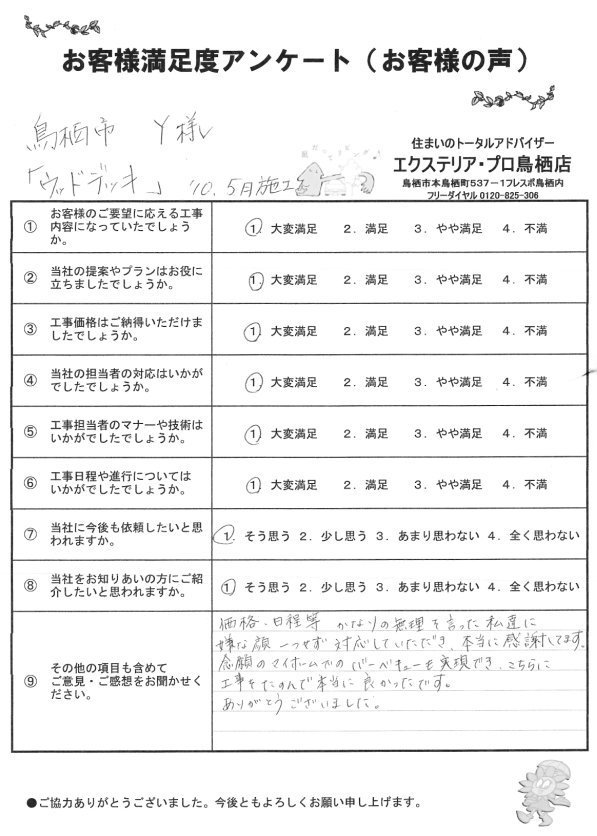 お客様満足度アンケート（お客様の声）
鳥栖市 Y様
「ウッドデッキ」 '10.5月施工
住まいのトータルアドバイザー
エクステリア・プロ鳥栖店
鳥栖市本鳥栖町537－1フレスポ鳥栖内
フリーダイヤル 0120-825-306
① お客様のご要望に応える工事
内容になっていたでしょう
か。
1. 大変満足 2. 満足 3. やや満足 4. 不満
② 当社の提案やプランはお役に
立ちましたでしょうか。
1. 大変満足 2. 満足 3. やや満足 4. 不満
③ 工事価格はご納得いただけま
したでしょうか。
1. 大変満足 2. 満足 3. やや満足 4. 不満
④ 当社の担当者の対応はいかが
でしたでしょうか。
1. 大変満足 2. 満足 3. やや満足 4. 不満
⑤ 工事担当者のマナーや技術は
いかがでしたでしょうか。
1. 大変満足 2. 満足 3. やや満足 4. 不満
⑥ 工事日程や進行については
いかがでしたでしょうか。
1. 大変満足 2. 満足 3. やや満足 4. 不満
⑦ 当社に今後も依頼したいと思
われますか。
1. そう思う 2. 少し思う 3. あまり思わない 4. 全く思わない
⑧ 当社をお知りあいの方にご紹
介したいと思われますか。
1. そう思う 2. 少し思う 3. あまり思わない 4. 全く思わない
⑨ その他の項目も含めて
ご意見・ご感想をお聞かせく
ださい。
価格・日程等 かなりの無理を言った私達に
嫌な顔一つせず対応していただき、本当に感謝してます。
念願のマイホームでのバーベキューを実現でき、こちらに
工事をたのんで本当に良かったです。
ありがとうございました。
●ご協力ありがとうございました。今後ともよろしくお願い申し上げます。